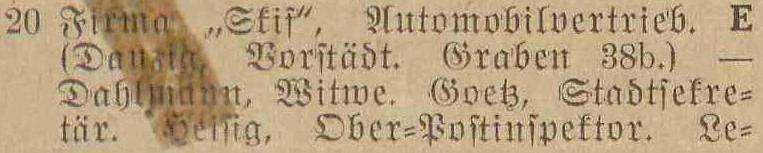 20 Firma „Skif“, Automobilvertrieb. E
(Danzig, Vorſtädt. Graben 38b.) —
Dahlmann, Witwe. Goetz, Stadtſekre=
tär. Heiſig, Ober=Poſtinſpektor. Le=